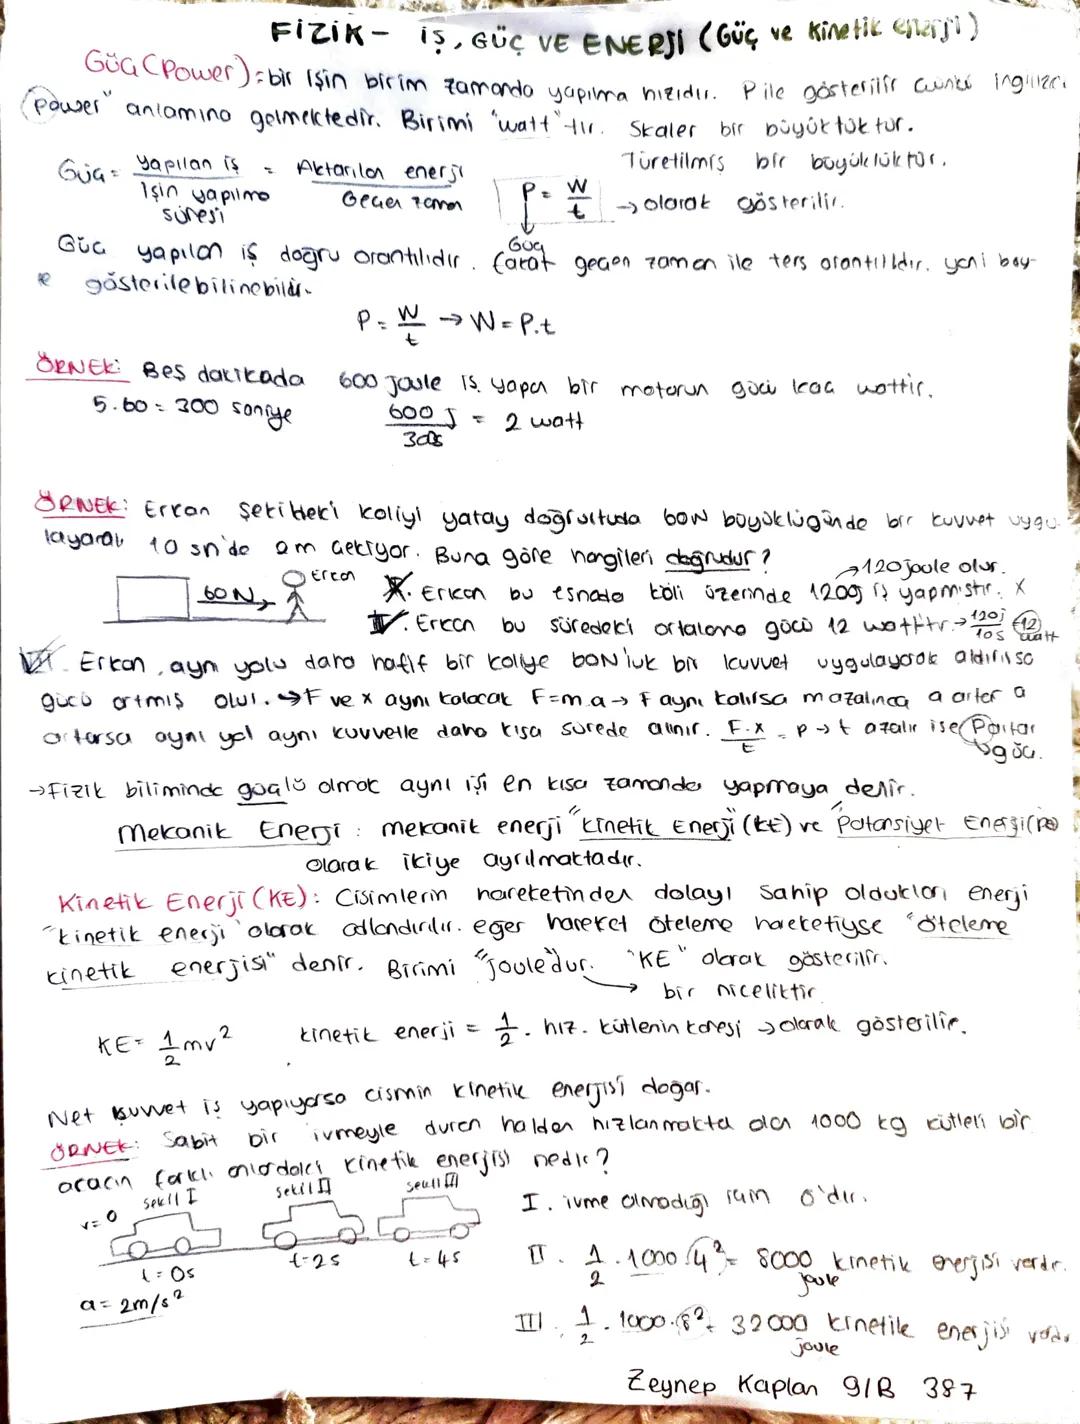 FİZİK - İŞ, GÜÇ VE ENERJİ (Güç ve Kinetik enerji)
Güç (Power): bir işin birim zamanda yapılma hızıdır. P ile gösterilir çünkü ingilizce
"power" anlamına gelmektedir. Birimi "watt"tır. Skaler bir büyüklüktür.
Türetilmiş bir büyüklüktür.
Güç = yapılan iş / işin yapılma süresi = Aktarılan enerji / Geçen zaman
P = W/t → olarak gösterilir.
Güç
Güç yapılan iş doğru orantılıdır. Fakat geçen zaman ile ters orantılıdır. yani böy-
e gösterilebilinebilir.
P = W/t → W = P.t
ÖRNEK: Beş dakikada 600 joule iş yapan bir motorun gücü kaç wattir.
5.60 = 300 saniye 600 J / 300s = 2 watt
ÖRNEK: Erkan şekildeki koliyi yatay doğrultuda 60N büyüklüğünde bir kuvvet uygu-
layarak 10 sn'de 2m çekiyor. Buna göre hangileri doğrudur?
→ 120 joule olur.
60N Erkan
I. Erkan bu esnada koli üzerinde 1200j iş yapmıştır. X
II. Erkan bu süredeki ortalama gücü 12 watttır. → 120j / 10s = 12 watt
III. Erkan, aynı yolu daha hafif bir koliye 60N'luk bir kuvvet uygulayarak aldırılsa
gücü artmış olur. → F ve x aynı kalacak F=m.a → F aynı kalırsa m azalınca a artar a
artarsa aynı yol aynı kuvvetle daha kısa sürede alınır. F.x / t = P → t azalır ise P artar
güç.
→ Fizik biliminde güçlü olmak aynı işi en kısa zamanda yapmaya denir.
Mekanik Enerji: mekanik enerji "Kinetik Enerji (KE) ve Potansiyel Enerji (PE)
olarak ikiye ayrılmaktadır.
Kinetik Enerji (KE): Cisimlerin hareketinden dolayı sahip oldukları enerji
"kinetik enerji" olarak adlandırılır. eğer hareket öteleme hareketiyse "öteleme
kinetik enerjisi" denir. Birimi "joule"dur. "KE" olarak gösterilir.
→ bir niceliktir
KE = 1/2 mv² kinetik enerji = 1/2 . hız . kütlenin karesi → olarak gösterilir.
Net kuvvet iş yapıyorsa cismin kinetik enerjisi doğar.
ÖRNEK: Sabit bir ivmeyle duran halden hızlanmakta olan 1000 kg kütleli bir
aracın farklı anlardaki kinetik enerjisi nedir?
Şekil I Şekil II Şekil III
v=0
t=0s t=2s t=4s
a = 2m/s²
I. ivme olmadığı için 0'dır.
II. 1/2 . 1000 . 4² = 8000 joule kinetik enerjisi vardır.
III. 1/2 . 1000 . 8² = 32000 joule kinetik enerjisi vardır
Zeynep Kaplan 9/B 387